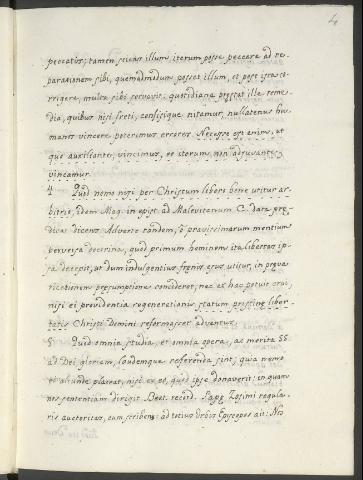 4
peccatis; tamen sciens illum, iterum posse peccare ad re-
parationem sibi, quemadmodum posset illum, et post ista co-
rrigere, multa sibi servavit: quotidiana præstat ille reme-
dia, quibus nisi freti, confisique nitamur, nullatenus hu-
manos vincere poterimus errores. Necesse est enim, ut
quo auxiliante, vincimus, eo iterum non adjuvante,
vincamur.
4 Quod nemo nisi per Christum libero bene utitur ar-
bitrio, idem Mag. in epist. ad Malevitanum C. data præ-
dicat dicens: Adverte tandem, o pravissimarum mentium
perversa doctrina, quod primum hominem ita libertas ip-
sa decepit, ut dum indulgentius frenis ejus utitur, in præva-
ricationem præsumptione consideret; nec ex hac potuit erui,
nisi ei providentia regenerationis statum pristinæ liber-
tatis Christi Domini reformasset adventus.
5 Quod omnia studia, et omnia opera, ac merita SS.
ad Dei gloriam, laudemque referenda sint; quia nemo
ei aliunde placeat, nisi ex eo, quod ipse donaverit: in quam
nos sententiam dirigit Beat. record. Papæ Zosimi regula-
ris auctoritas, cum scribens ad totius Orbis Episcopos ait: Nos